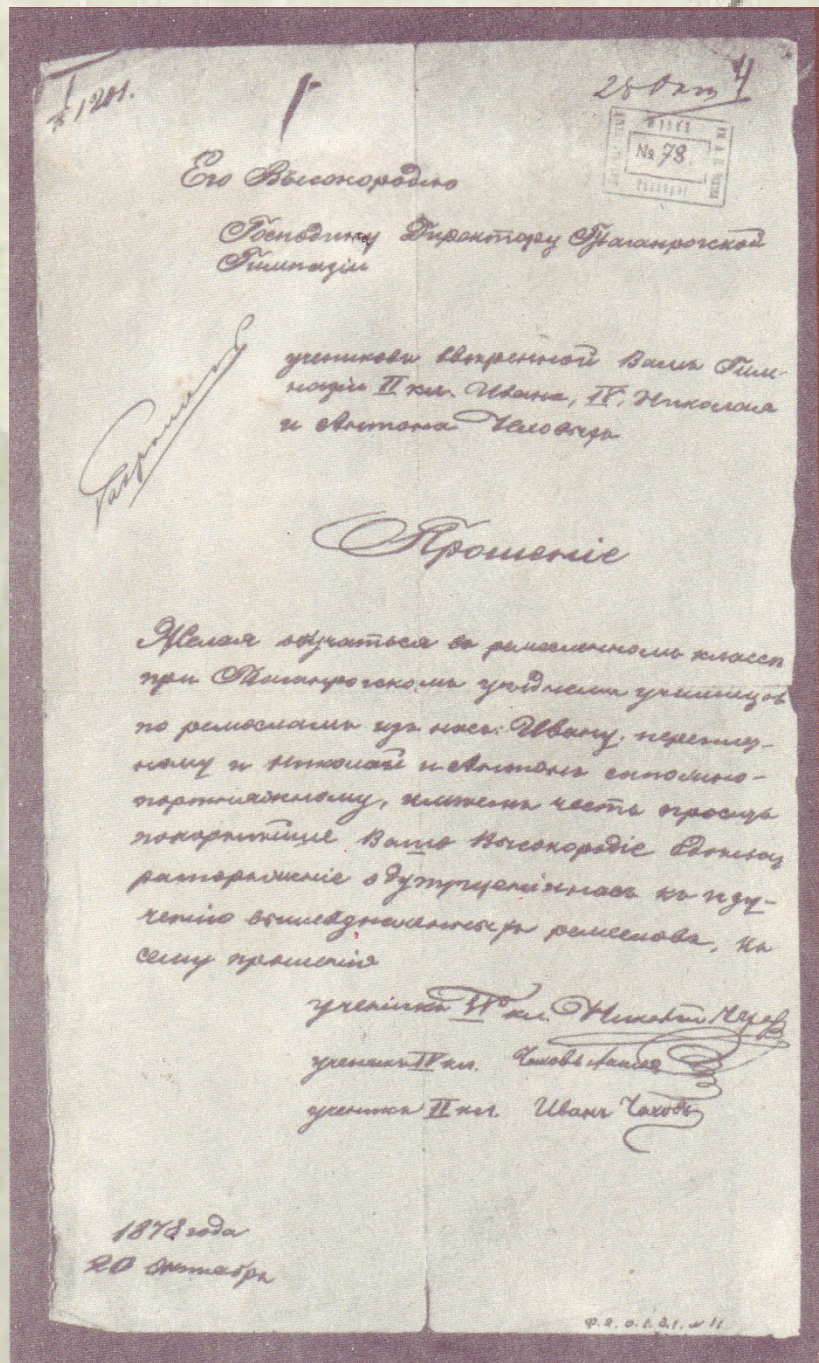 № 1201.
25 Окт 4
№ 78.
Таганрог
Его Высокородію
Господину Директору Таганрогской
Гимназіи
учениковъ ввѣренной Вамъ Гим-
назіи II кл. Ивана, IV, Николая
и Антона Чеховыхъ
Прошеніе
Желая обучаться въ ремесленномъ классѣ
при Таганрогскомъ уѣздномъ училищѣ
по ремесламъ изъ насъ: Ивану, переплет-
ному и Николай и Антонъ сапожно-
портняжному, имѣемъ честь просить
покорнѣйше Ваше Высокородіе
распоряженіе о допущеніи насъ къ изу-
ченію вышеозначенныхъ ремеслъ, къ
сему прошенію
ученикъ кл. Николай Чеховъ
ученикъ IV кл. Чеховъ Антон
ученикъ II кл. Иванъ Чеховъ
1873 года
20 Октября